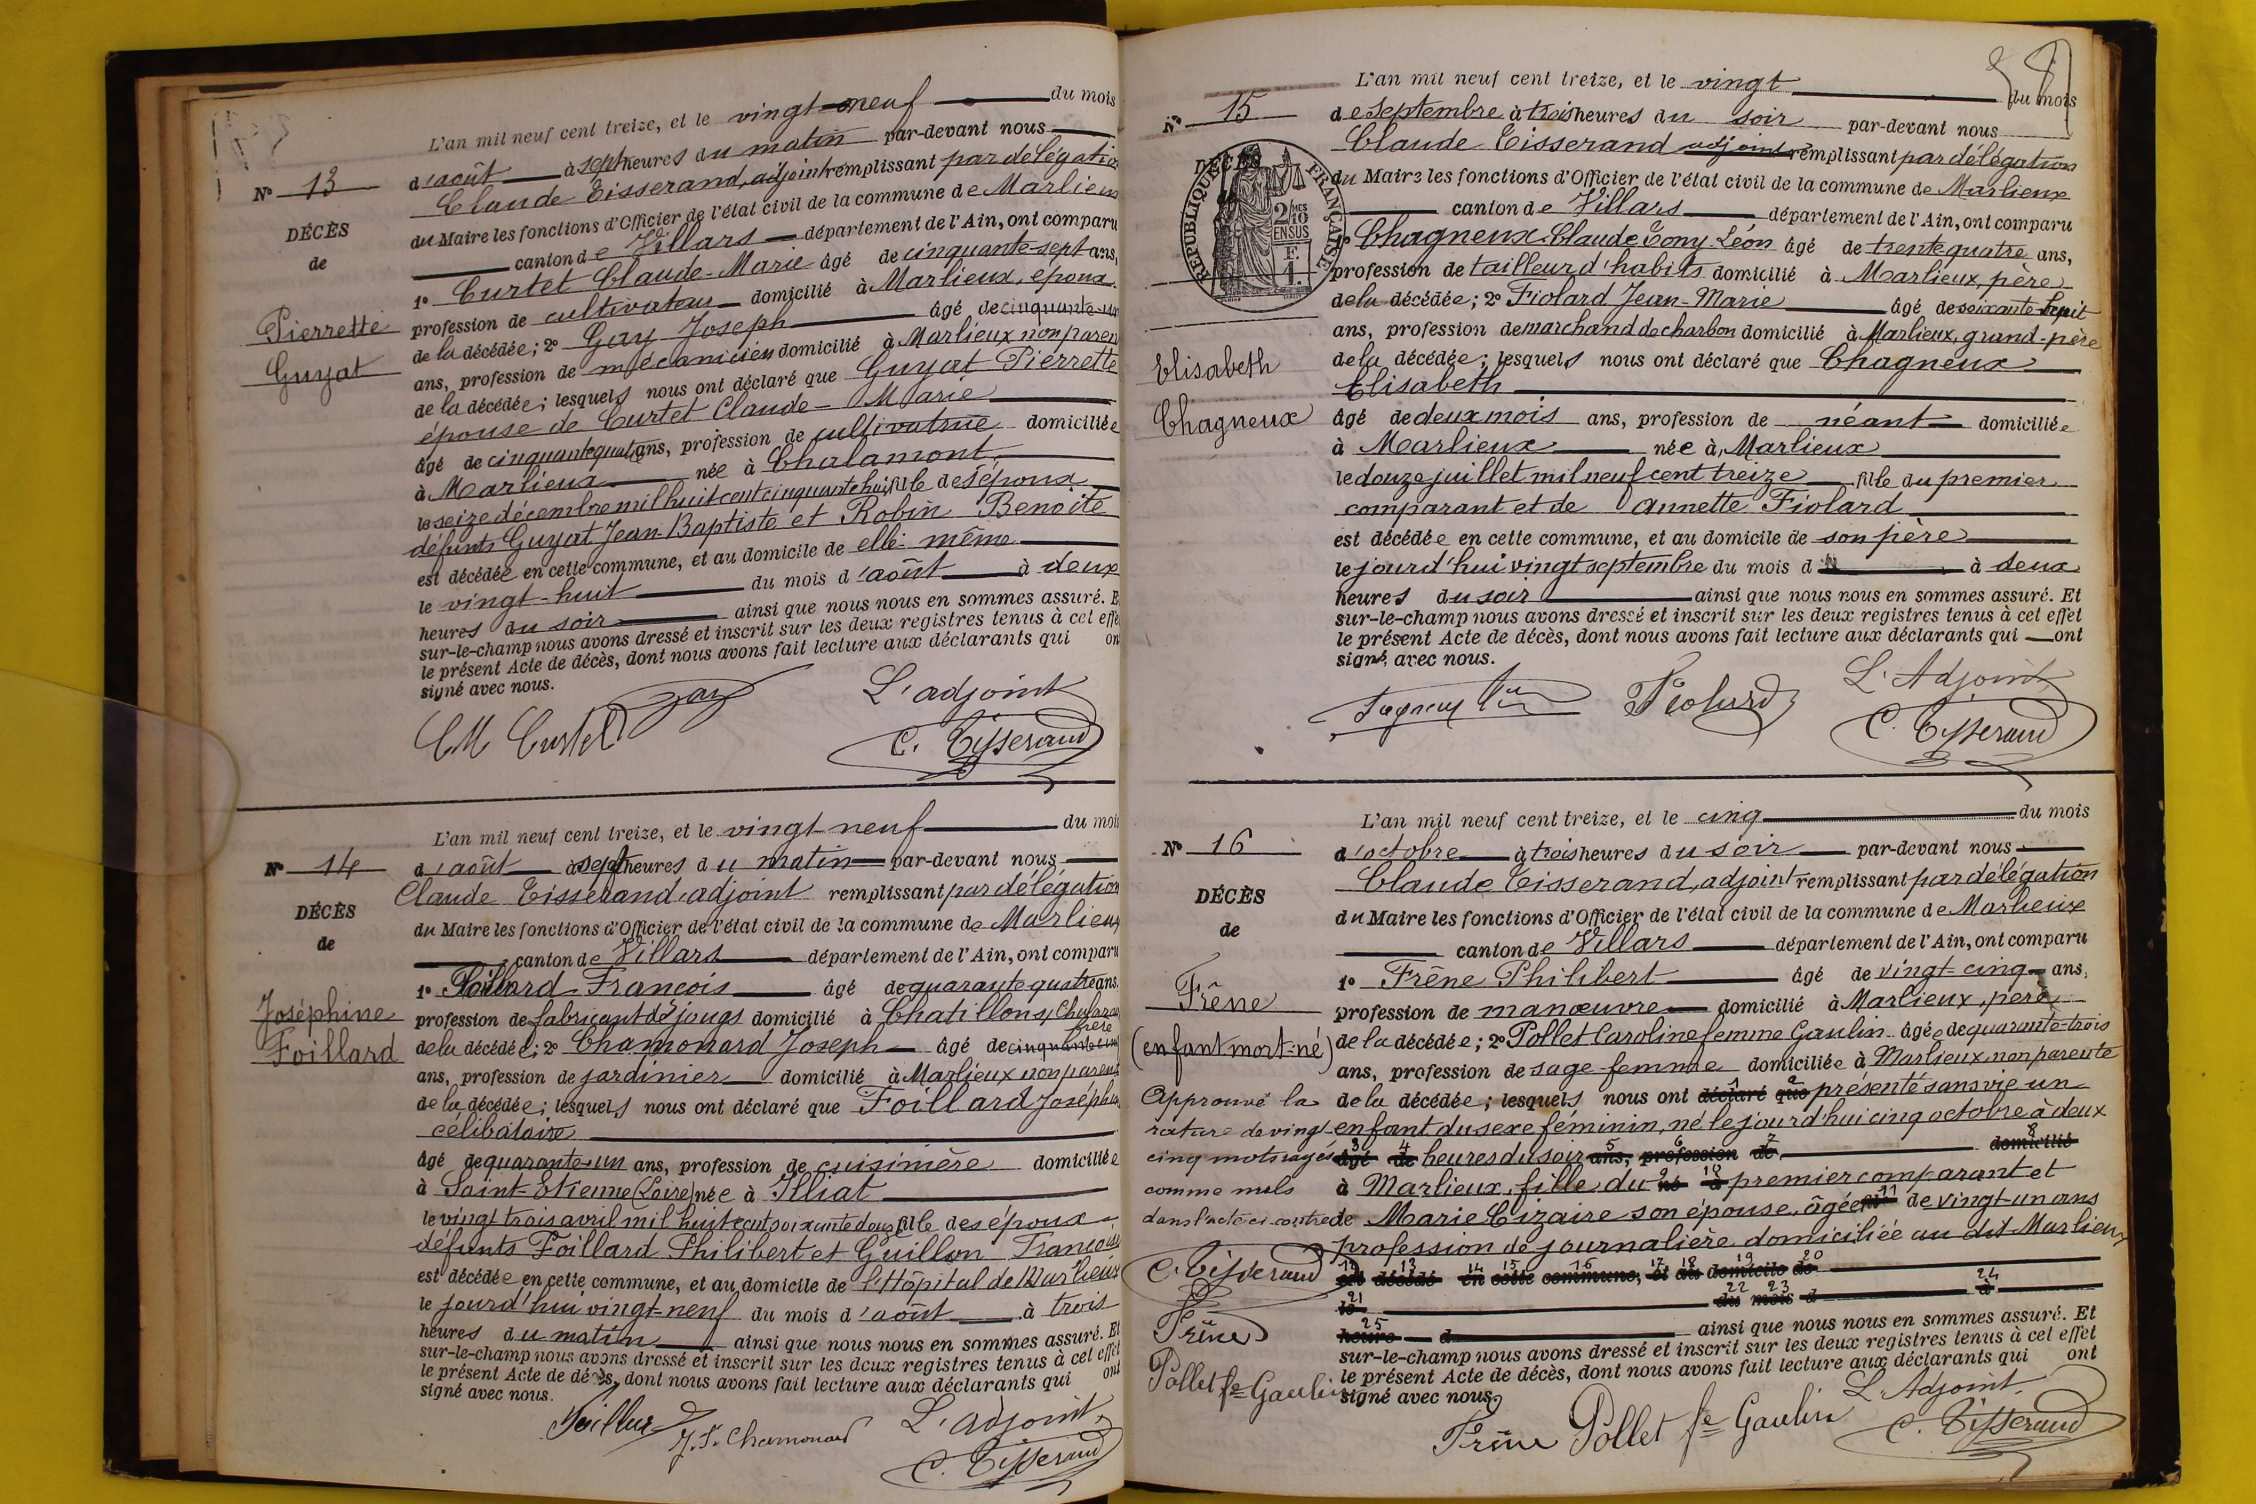 L'an mil neuf cent treize, et le vingt-neuf du mois
Nº 13
d'août à sept heures du matin par-devant nous
Claude Tisserand, adjoint remplissant par délégation
DÉCÈS
du Maire les fonctions d'Officier de l'état civil de la commune de Marlieux
de
canton de Villars département de l'Ain, ont comparu
1º Curtet Claude-Marie âgé de cinquante-sept ans,
Pierrette
profession de cultivateur domicilié à Marlieux, époux
Guyat
de la décédée; 2º Gay Joseph âgé de cinquante-un
ans, profession de mécanicien domicilié à Marlieux non parent
de la décédée; lesquels nous ont déclaré que Guyat Pierrette
épouse de Curtet Claude-Marie
âgé de cinquante quatre ans, profession de cultivatrice domiciliée
à Marlieux née à Chalamont,
le seize décembre mil huit cent cinquante huit, fille des époux
défunts Guyat Jean-Baptiste et Robin Benoîte
est décédée en cette commune, et au domicile de elle-même
le vingt-huit du mois d'août à deux
heures du soir ainsi que nous nous en sommes assuré. E
sur-le-champ nous avons dressé et inscrit sur les deux registres tenus à cet effe
le présent Acte de décès, dont nous avons fait lecture aux déclarants qui on
signé avec nous.
CM Curtet Gay L'adjoint
C. Tisserand
L'an mil neuf cent treize, et le vingt-neuf du moi
Nº 14
d'août à sept heures du matin par-devant nous
Claude Tisserand, adjoint remplissant par délégation
DÉCÈS
du Maire les fonctions d'Officier de l'état civil de la commune de Marlieux
de
canton de Villars département de l'Ain, ont comparu
1º Foillard François âgé de quarante quatre ans.
Joséphine
profession de fabricant de jougs domicilié à Chatillon s/ Chalaronne
Foillard
frère
de la décédée; 2º Chamonard Joseph âgé de cinquante un
ans, profession de jardinier domicilié à Marlieux non parent
de la décédée; lesquels nous ont déclaré que Foillard Joséphine
célibataire
âgé de quarante-un ans, profession de cuisinière domiciliée
à Saint-Etienne (Loire) née à Illiat
le vingt trois avril mil huit cent soixante douze fille des époux
défunts Foillard Philibert et Guillon Françoise
est décédée en cette commune, et au domicile de l'Hôpital de Marlieux
le jourd'hui vingt-neuf du mois d'août à trois
heures du matin ainsi que nous nous en sommes assuré. Et
sur-le-champ nous avons dressé et inscrit sur les deux registres tenus à cet effet
le présent Acte de décès, dont nous avons fait lecture aux déclarants qui ont
signé avec nous.
Foillard J. Chamonard L'adjoint,
C. Tisserand
L'an mil neuf cent treize, et le vingt du mois
Nº 15
de Septembre à trois heures du soir par-devant nous
Claude Tisserand adjoint remplissant par délégation
DÉCÈS
RÉPUBLIQUE FRANÇAISE
2/10 MES
EN SUS
F.
1.
du Maire les fonctions d'Officier de l'état civil de la commune de Marlieux
canton de Villars département de l'Ain, ont comparu
1º Chagneux Claude Tony Léon âgé de trente quatre ans,
profession de tailleur d'habits domicilié à Marlieux, père
de la décédée; 2º Fiolard Jean-Marie âgé de soixante-huit
ans, profession de marchand de charbon domicilié à Marlieux, grand-père
Elisabeth
de la décédée; lesquels nous ont déclaré que Chagneux
Elisabeth
Chagneux
âgé de deux mois ans, profession de néant domiciliée
à Marlieux née à, Marlieux
le douze juillet mil neuf cent treize fille du premier
comparant et de Annette Fiolard
est décédée en cette commune, et au domicile de son père
le jourd'hui vingt septembre du mois d à deux
heures du soir ainsi que nous nous en sommes assuré. Et
sur-le-champ nous avons dressé et inscrit sur les deux registres tenus à cet effet
le présent Acte de décès, dont nous avons fait lecture aux déclarants qui ont
signé, avec nous.
Fiolard L'Adjoint,
C. Tisserand
L'an mil neuf cent treize, et le cinq du mois
Nº 16
d'octobre à trois heures du soir par-devant nous
Claude Tisserand, adjoint remplissant par délégation
DÉCÈS
du Maire les fonctions d'Officier de l'état civil de la commune de Marlieux
de
canton de Villars département de l'Ain, ont comparu
1º Frêne Philibert âgé de vingt-cinq ans,
Frêne
profession de manœuvre domicilié à Marlieux, père
(enfant mort-né)
de la décédée; 2º Pollet Caroline femme Gaulin âgée de quarante-trois
ans, profession de sage femme domiciliée à Marlieux, non parente
Approuvé la
de la décédée; lesquels nous ont déclaré 1 que 2 présenté sans vie un
rature de vingt
enfant du sexe féminin, né le jourd'hui cinq octobre à deux
cinq mots rayés
âgé 3 de 4 heures du soir ans, 5 profession 6 de 7 domicilié 8
comme nuls
à Marlieux, fille du né 9 à 10 premier comparant et
dans l'acte ci-contre
de Marie Cizaire son épouse, âgée 11 de vingt-un ans
profession de journalière domiciliée au dit Marlieux
C. Tisserand
est 12 décédé 13 en 14 cette 15 commune, 16 et 17 au 18 domicile 19 de 20
le 21 du 22 mois 23 d à 24
Frêne
heure 25 d ainsi que nous nous en sommes assuré. Et
sur-le-champ nous avons dressé et inscrit sur les deux registres tenus à cet effet
Pollet fe Gaulin
le présent Acte de décès, dont nous avons fait lecture aux déclarants qui ont
signé avec nous.
Frêne Pollet fe Gaulin L'Adjoint.
C. Tisserand